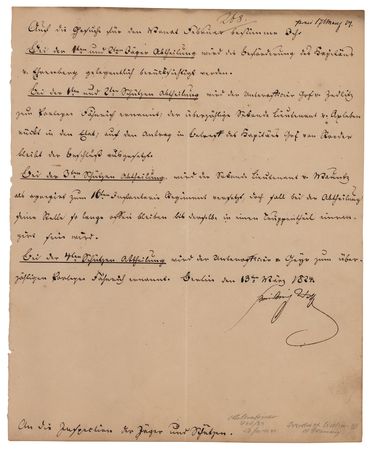 268.
Auf die Gesuche für den Monat Februar bestimme Ich:
Bei der 1ten und 2ten Jäger Abtheilung wird die Beförderung des Kapitains
v. Ehrenberg gelegentlich berücksichtigt werden.
Bei der 1ten und 2ten Schützen Abtheilung wird der Unterofficier Graf v. Zedlitz
zum Portepee Fähnrich ernannt; der überzählige Sekonde Lieutenant v.
rückt in den Etat; auf den Antrag in Betreff des Kapitains Graf von Roeder
bleibt der Beschluß ausgesetzt.
Bei der 3ten Schützen Abtheilung wird der Sekonde Lieutenant v.
als aggregirt zum 16ten Infanterie Regiment versetzt, doch soll bei der Abtheilung
seine Stelle so lange offen bleiben bis derselbe in einen Truppentheil einran-
girt sein wird.
Bei der 4ten Schützen Abtheilung wird der Unterofficier v. Geyr zum über-
zähligen Portepee Fähnrich ernannt. Berlin den 13ten März 1824.
An die Inspection der Jäger und Schützen.
Frederick William III
of Germany